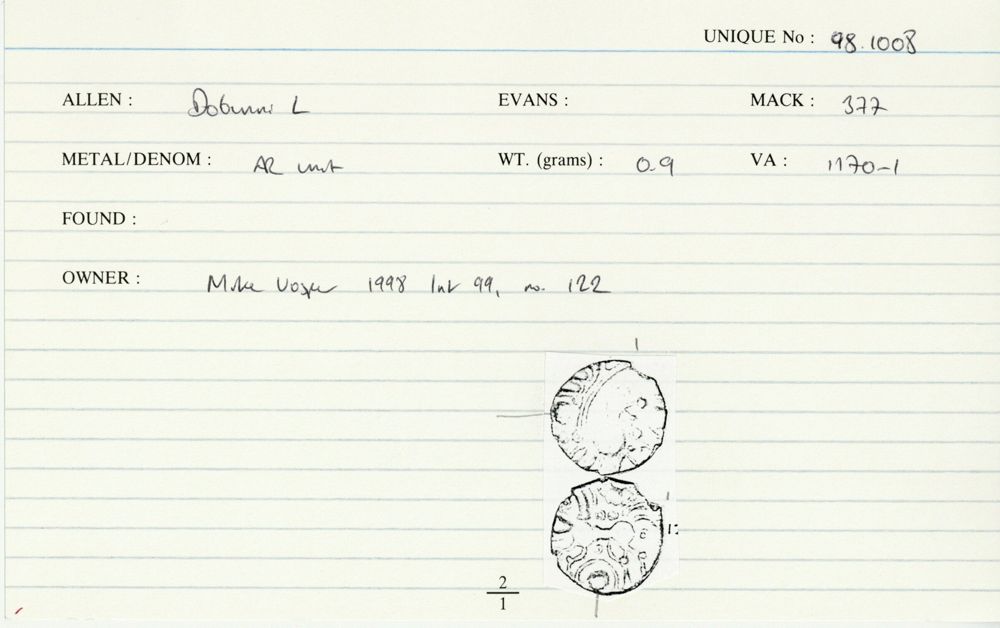 UNIQUE No : 98.1008
ALLEN : Dobunni L EVANS : MACK : 377
METAL/DENOM : AR unit WT. (grams) : 0.9 VA : 1170-1
FOUND :
OWNER : Mike Vosper 1998 list 99, no. 122
12
2
1